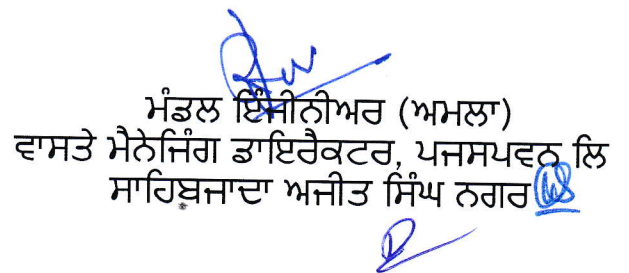 ਮੰਡਲ ਇੰਜੀਨੀਅਰ (ਅਮਲਾ)
ਵਾਸਤੇ ਮੈਨੇਜਿੰਗ ਡਾਇਰੈਕਟਰ, ਪਜਸਪਵਨ ਲਿ
ਸਾਹਿਬਜਾਦਾ ਅਜੀਤ ਸਿੰਘ ਨਗਰ